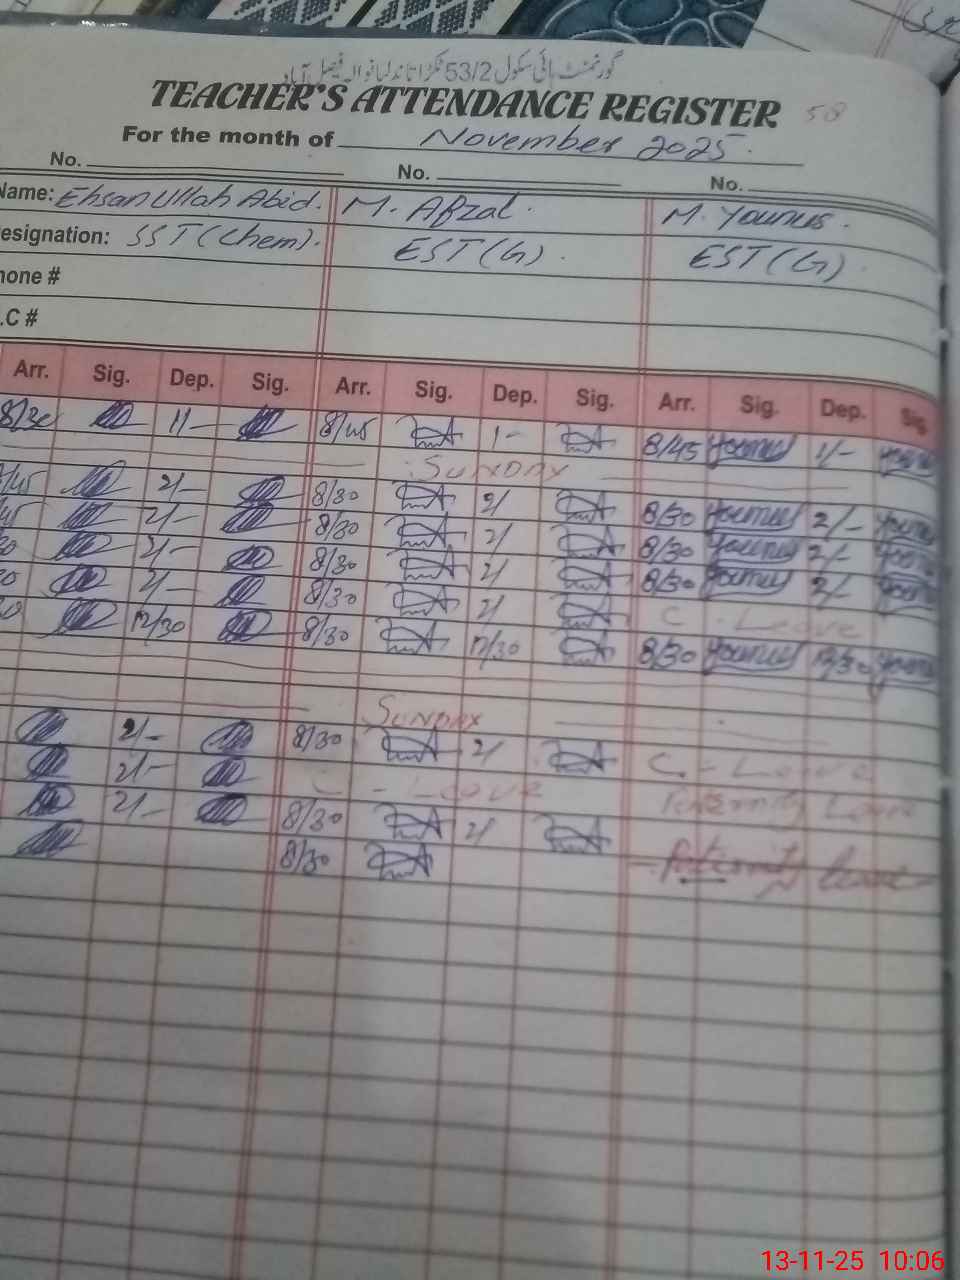 گورنمنٹ ہائی سکول 53/2 ٹکڑا تاندلیانوالہ فیصل آباد
TEACHER'S ATTENDANCE REGISTER 58
For the month of November 2025.
No. No. No.
Name: Ehsan Ullah Abid. M. Afzal. M. Younus.
esignation: SST (Chem). EST (G). EST (G).
hone #
.C #
Arr. Sig. Dep. Sig. Arr. Sig. Dep. Sig. Arr. Sig. Dep. Sig
8/30 1/- 8/45 1- 8/45 Younus 1/- Youn
SUNDAY
/45 2/- 8/30 2/ 8/30 Younus 2/- Youn
/45 2/- 8/30 2/ 8/30 Younus 2/- Youn
30 2/- 8/30 2/ 8/30 Younus 2/- Youn
30 2/- 8/30 2/ C. Leave
30 12/30 8/30 12/30 8/30 Younus 12/30 Youn
SUNDAY
2/- 8/30 2/ C. - Leave
2/- C - Leave Paternity Leave
2/- 8/30 2/
8/30 Paternity leave
13-11-25 10:06